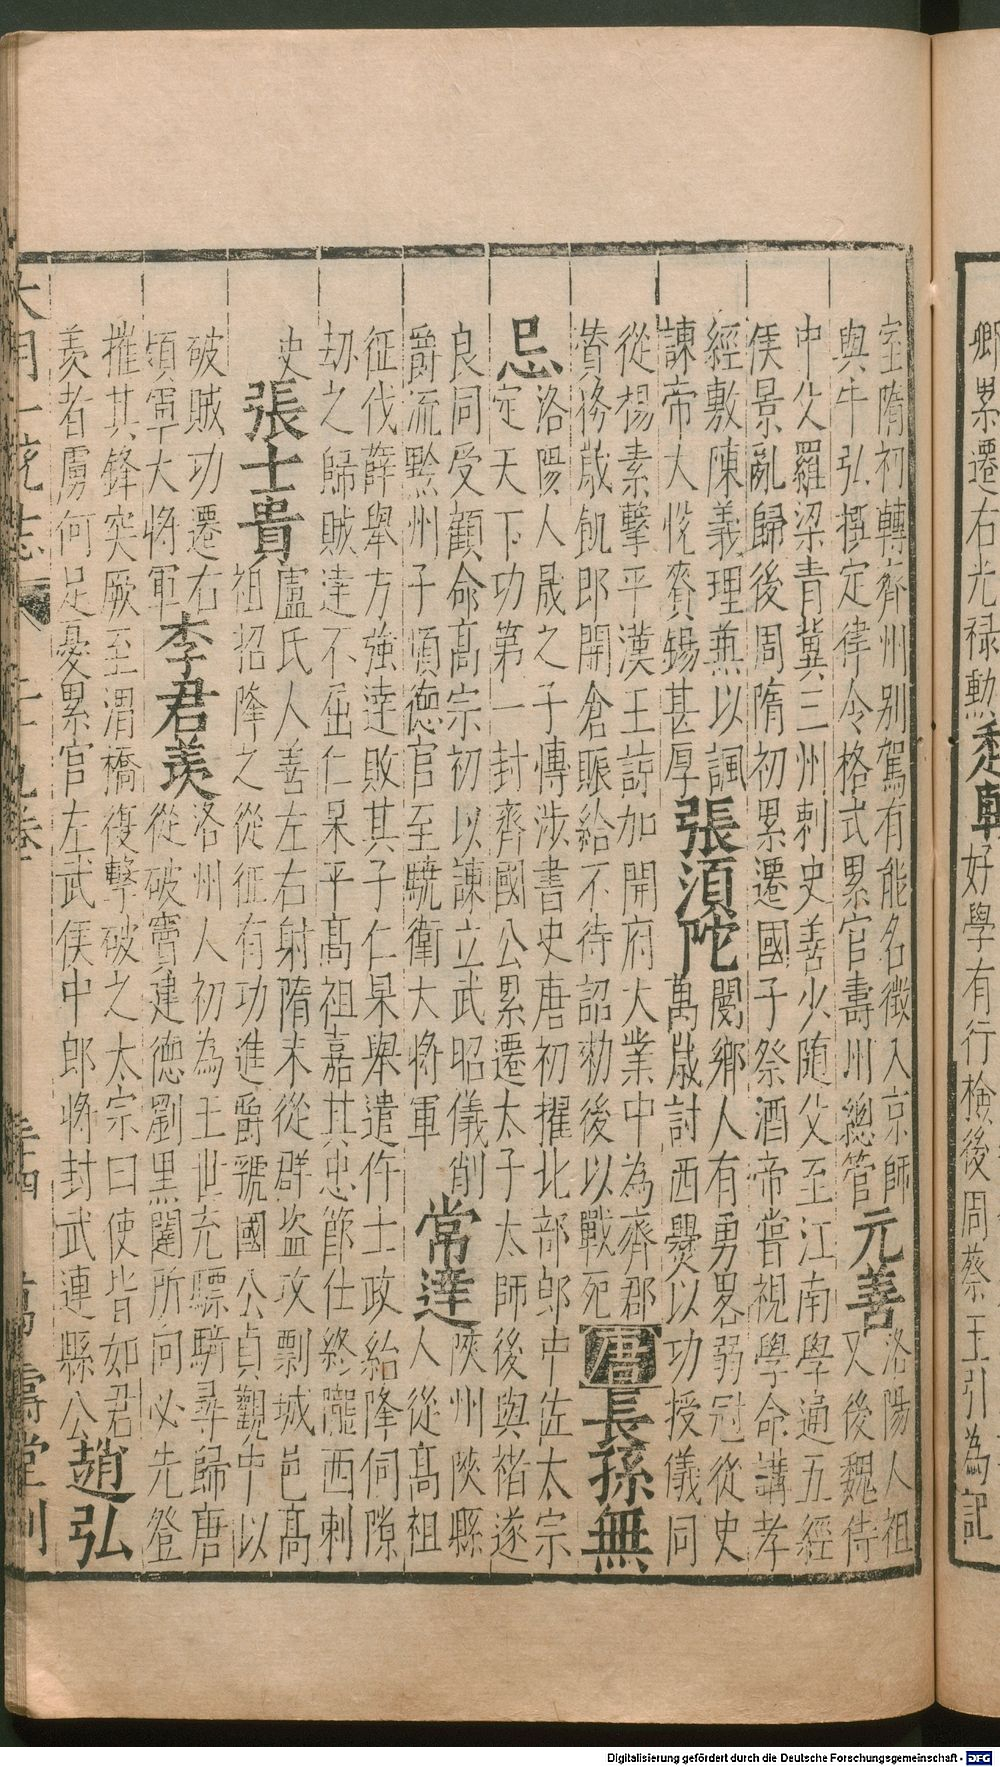 卿累遷右光禄勳趙軌好學有行檢後周蔡王引為記
室隋初轉齊州别駕有能名徵入京師
與牛弘撰定律令格式累官壽州總管元善洛陽人祖
又後魏侍
中父羅梁青冀三州刺史善少随父至江南學通五經
侯景亂歸後周隋初累遷國子祭酒帝嘗視學命講孝
經敷陳義理兼以諷
諫帝大悅賚錫甚厚張須陀閿鄉人有勇畧弱冠從史
萬歲討西㸑以功授儀同
從楊素擊平漢王諒加開府大業中為齊郡
賛務歲飢郎開倉賑給不待詔勑後以戰死唐長孫無
忌洛陽人晟之子慱涉書史唐初擢北部郎中佐太宗
定天下功第一封齊國公累遷太子太師後與褚遂
良同受顧命高宗初以諫立武昭儀削
爵流黔州子順德官至驍衛大將軍常達陝州陝縣
人從高祖
征伐薛舉方強達敗其子仁杲舉遣仵士政紿降伺隙
劫之歸賊達不屈仁杲平高祖嘉其忠節仕終隴西刺
史張士貴盧氏人善左右射隋末從群盗攻剽城邑高
祖招降之從征有功進爵虢國公貞觀中以
破賊功遷右
領軍大將軍李君羨洛州人初為王世充驃騎尋歸唐
從破竇建德劉黑闥所向必先登
摧其鋒突厥至渭橋復擊破之太宗曰使皆如君
羡者虜何足憂累官左武侯中郎將封武連縣公趙弘
大明一統志 二十九卷 二十四 萬壽堂刊
Digitalisierung gefördert durch die Deutsche Forschungsgemeinschaft - DFG